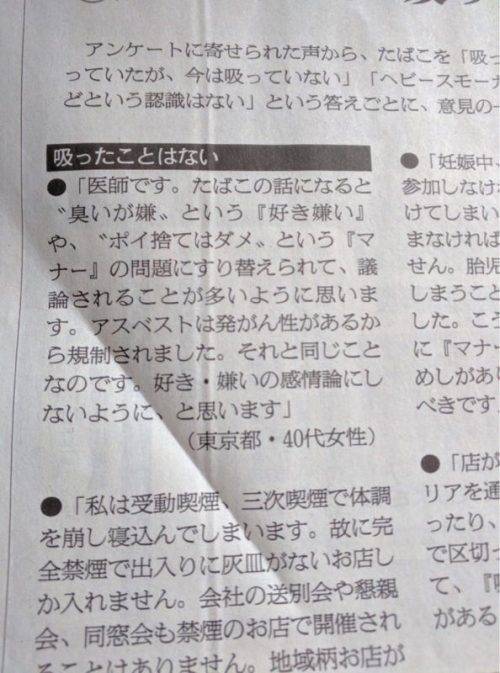 アンケートに寄せられた声から、たばこを「吸っ
っていたが、今は吸っていない」「ヘビースモー
どという認識はない」という答えごとに、意見の一
吸ったことはない
●「医師です。たばこの話になると
〝臭いが嫌〟という『好き嫌い』
や、〝ポイ捨てはダメ〟という『マ
ナー』の問題にすり替えられて、議
論されることが多いように思いま
す。アスベストは発がん性があるか
ら規制されました。それと同じこと
なのです。好き・嫌いの感情論にし
ないように、と思います」
(東京都・40代女性)
●「私は受動喫煙、三次喫煙で体調
を崩し寝込んでしまいます。故に完
全禁煙で出入りに灰皿がないお店し
か入れません。会社の送別会や懇親
会、同窓会も禁煙のお店で開催され
ることはありません。地域柄お店が
●「妊娠中、
参加しなけ
けてしまい
まなければ
せん。胎児
しまうこと
した。こう
に『マナー
めしがあり
べきです
●「店が
リアを通
ったり、
で区切っ
て、『
がある